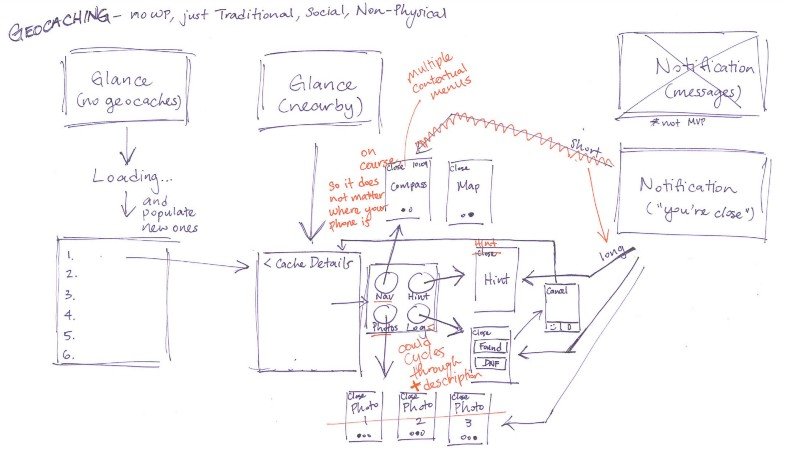 GEOCACHING - no WP, just Traditional, Social, Non-Physical
Glance
(no geocaches)
Glance
(nearby)
multiple
contextual
menus
Notification
(messages)
* not MVP
Loading...
and
populate
new ones
on
course
So it does
not matter
where your
phone is
Close
Compass
Close
Map
short
Notification
("you're close")
1.
2.
3.
4.
5.
6.
< Cache Details
Nav
Hint
Photos
Logs
Hint
Close
Hint
long
Cancel
Close
Found
DNF
could
cycles
through
+ description
Close
Photo
1
Close
Photo
2
Close
Photo
3